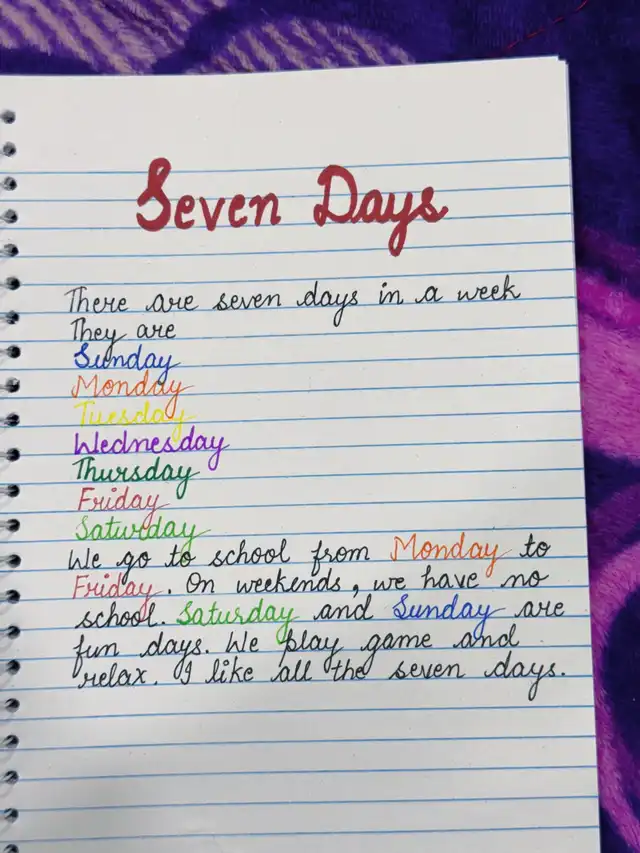 Seven Days
There are seven days in a week
They are
Sunday
Monday
Tuesday
Wednesday
Thursday
Friday
Saturday
We go to school from Monday to
Friday. On weekends, we have no
school. Saturday and Sunday are
fun days. We play game and
relax. I like all the seven days.